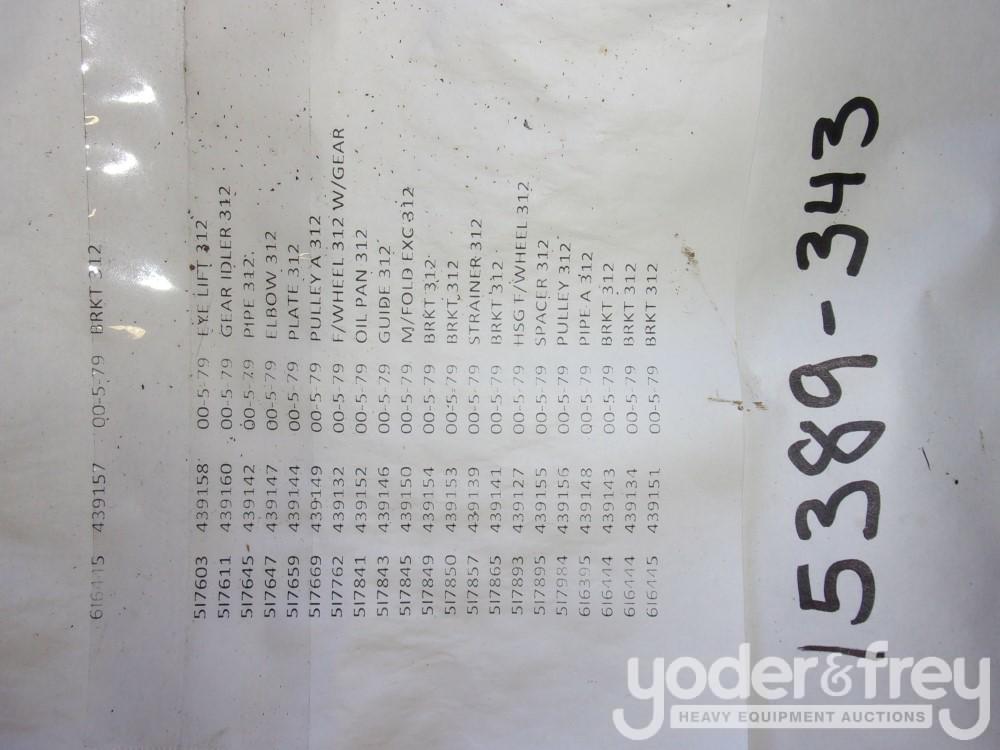 616445 439157 00-5-79 BRKT 312
5I7603 439158 00-5-79 EYE LIFT 312
5I7611 439160 00-5-79 GEAR IDLER 312
5I7645 439142 00-5-79 PIPE 312
5I7647 439147 00-5-79 ELBOW 312
5I7659 439144 00-5-79 PLATE 312
5I7669 439149 00-5-79 PULLEY A 312
5I7762 439132 00-5-79 F/WHEEL 312 W/GEAR
5I7841 439152 00-5-79 OIL PAN 312
5I7843 439146 00-5-79 GUIDE 312
5I7845 439150 00-5-79 M/FOLD EXC 312
5I7849 439154 00-5-79 BRKT 312
5I7850 439153 00-5-79 BRKT 312
5I7857 439139 00-5-79 STRAINER 312
5I7865 439141 00-5-79 BRKT 312
5I7893 439127 00-5-79 HSG F/WHEEL 312
5I7895 439155 00-5-79 SPACER 312
5I7984 439156 00-5-79 PULLEY 312
616395 439148 00-5-79 PIPE A 312
616444 439143 00-5-79 BRKT 312
616444 439134 00-5-79 BRKT 312
616445 439151 00-5-79 BRKT 312
15389-343
yoder&frey
HEAVY EQUIPMENT AUCTIONS